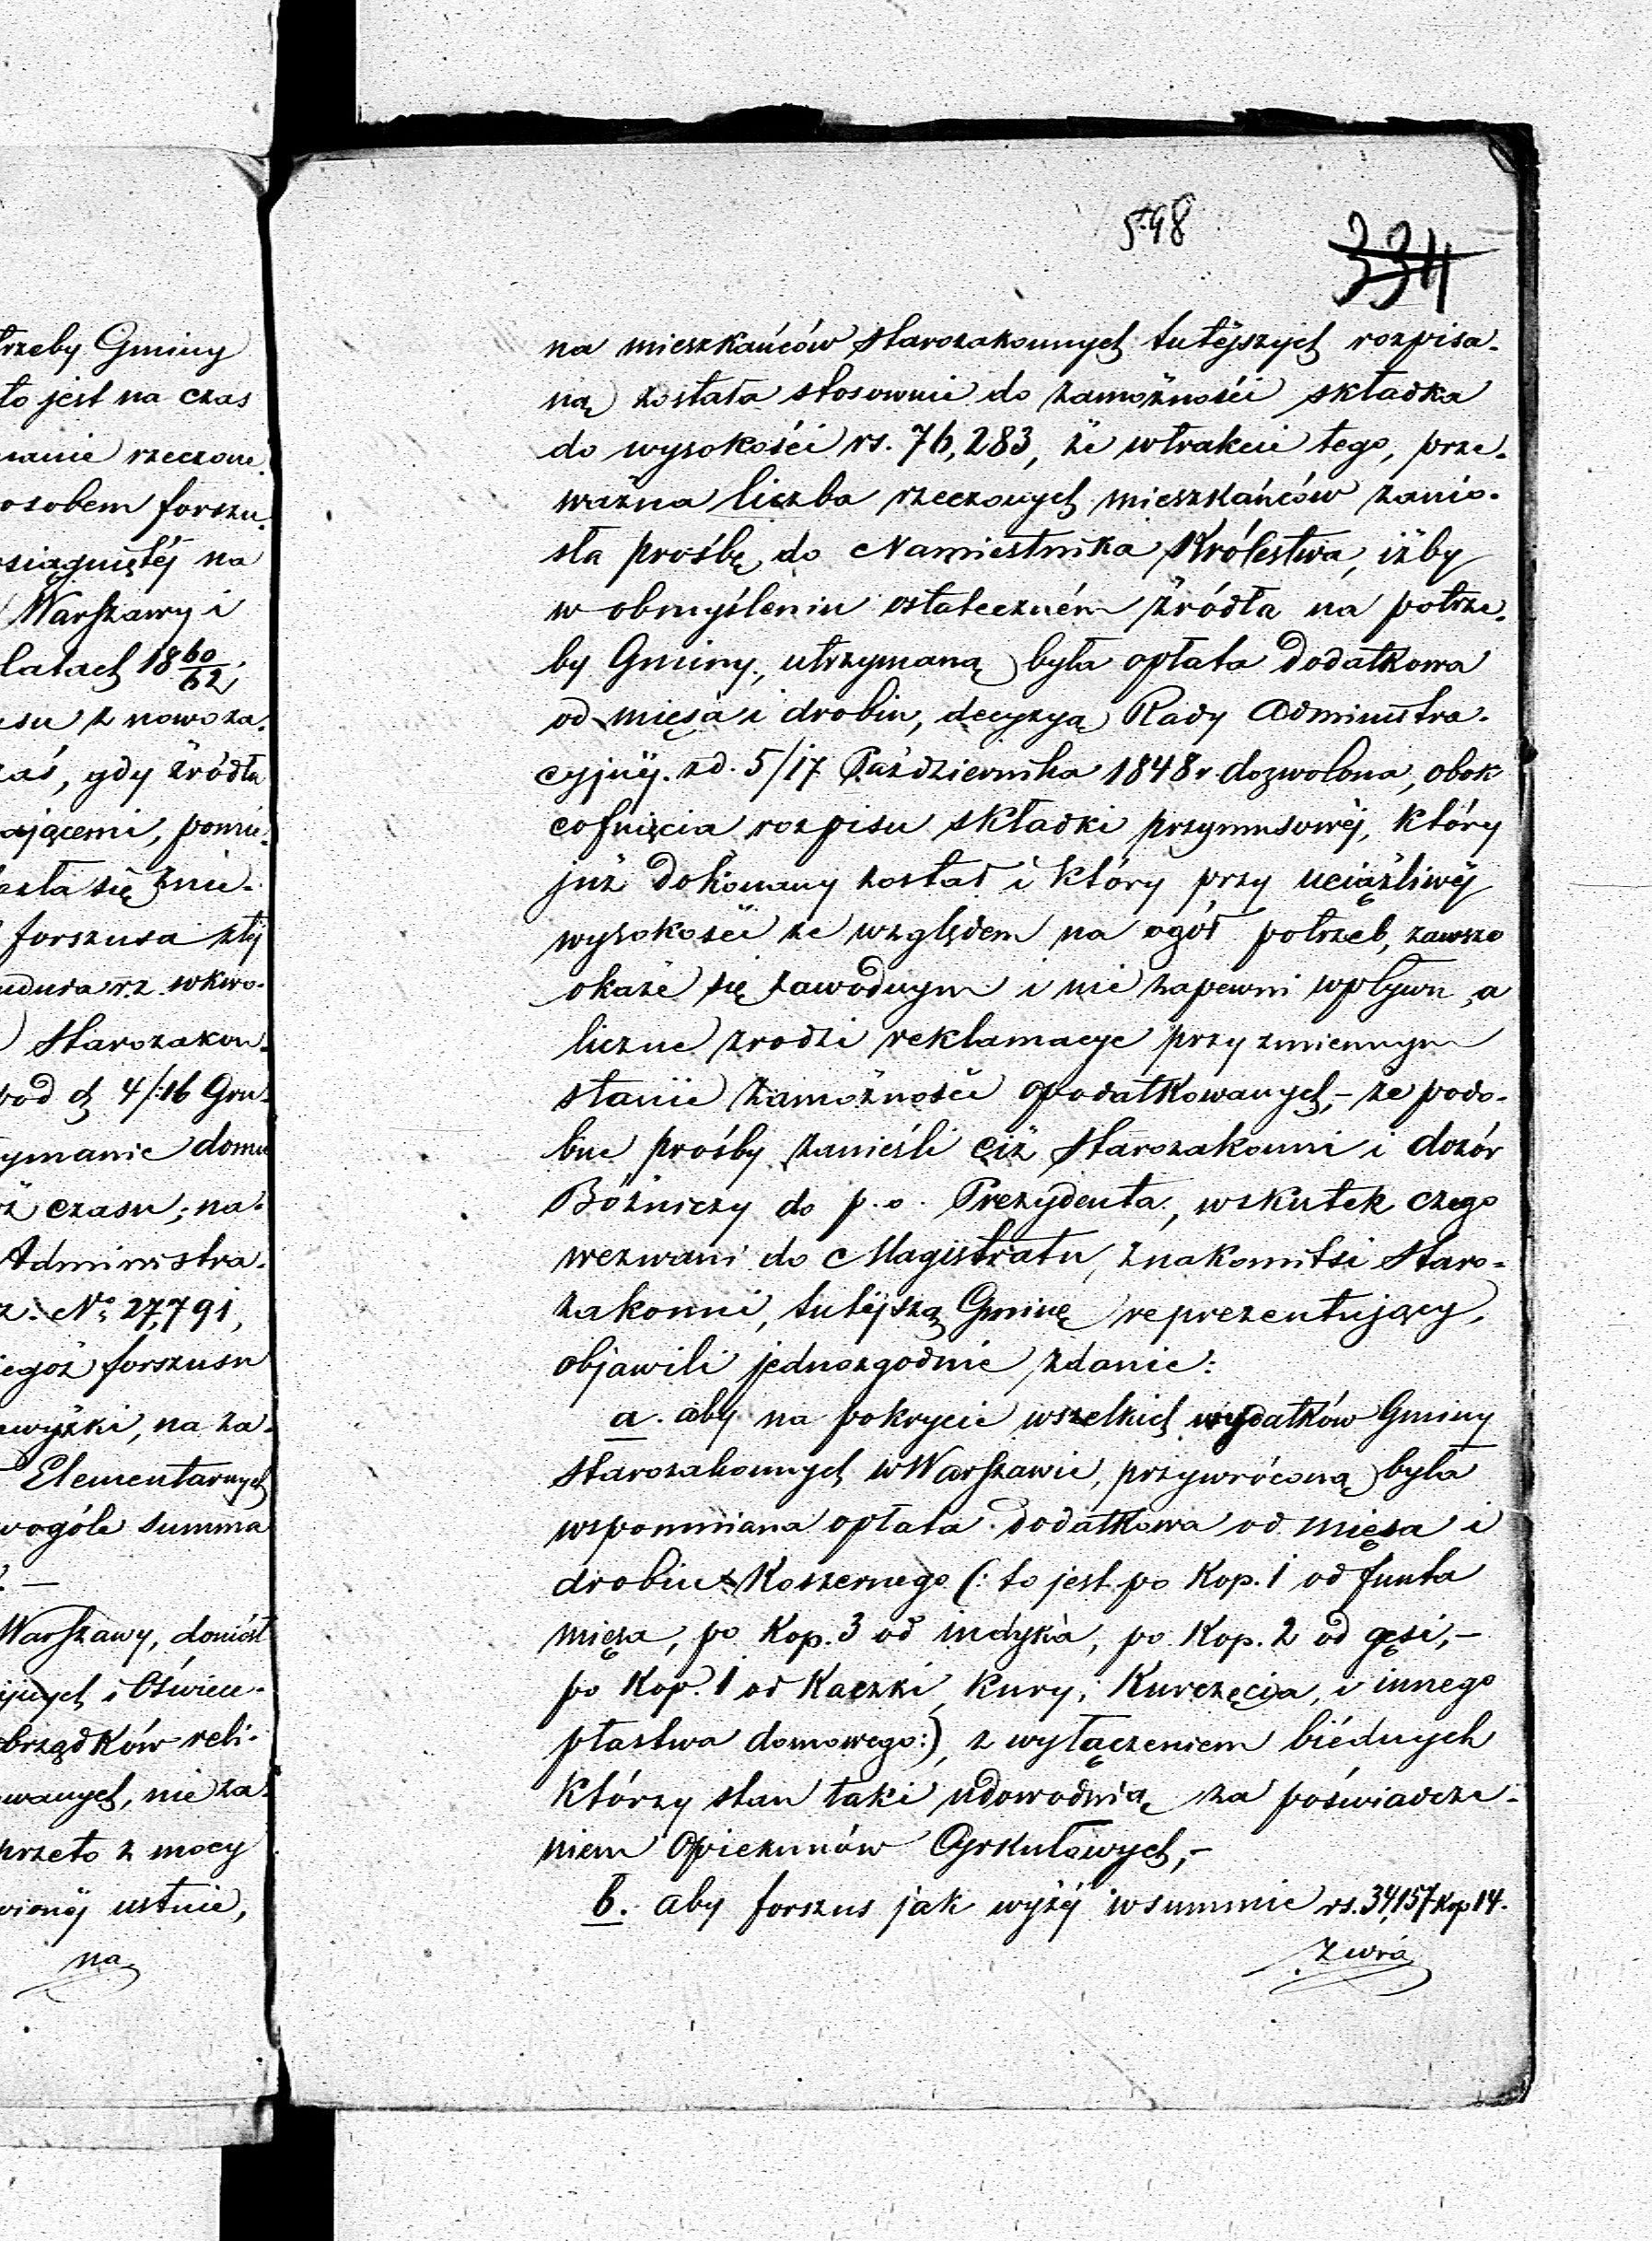 trzeby Gminy
to jest na czas
manie rzeczone.
osobem forszu.
siągniętéj na
Warszawy i
latach 18 60/62,
su z nowo za.
zaś, gdy źródła
ającemi, pomie.
azła się znie.
forszusa téj
wkwo.
Starozakon.
4/16 Gru.
ymanie domu
ż czasu; na.
Administra.
z. No 27,791,
iegoż forszusu
wyżki, na za.
Elementarnych
wogóle summa
Warszawy, doniósł
ijnych i Oświece.
brządków reli.
wanych, nie za.
przeto z mocy
wionéj ustnie,
na
598
334
na mieszkańców Starozakonnych tutéjszych rozpisa.
ną została stosownie do zamożności składka
do wysokości rs. 76,283, że wtrakcie tego, prze.
ważna liczba rzeczonych mieszkańców zanio.
sła prośbę do Namiestnika Królestwa, iżby
w obmyśleniu ostateczném źródła na potrze.
by Gminy, utrzymaną była opłata dodatkowa
od mięsa i drobiu, decyzyą Rady Administra.
cyjnéj. z d. 5/17 Października 1848 r. dozwolona, obok
cofnięcia rozpisu składki przymusowéj, który
już dokonany został i który przy uciążliwéj
wysokości ze względem na ogół potrzeb, zawsze
okaże się zawodnym i nie zapewni wpływu, a
liczne zrodzi reklamacye przy zmiennym
stanie zamożności opodatkowanych,- że podo.
bne prośby zanieśli ciż Starozakonni i dozór
Bóżniczy do p. o. Prezydenta, wskutek czego
wezwani do Magistratu, znakomitsi Staro-
zakonni, tutéjszą Gminę reprezentujący,
objawili jednozgodnie zdanie:
a. aby na pokrycie wszelkich wydatków Gminy
Starozakonnych w Warszawie, przywróconą była
wspomniana opłata dodatkowa od mięsa i
drobiu Koszernego (: to jest po Kop. 1 od funta
mięsa, po Kop. 3 od indyka, po Kop. 2 od gęsi,-
po Kop. 1 od Kaczki, Kury, Kurczęcia, i innego
ptastwa domowego:), z wyłączeniem biédnych
którzy stan taki udowodnią za poświadcze-
niem Opiekunów Cyrkułowych,-
b. aby forszus jak wyżéj w summie rs. 34,157 Kop 14.
zwró